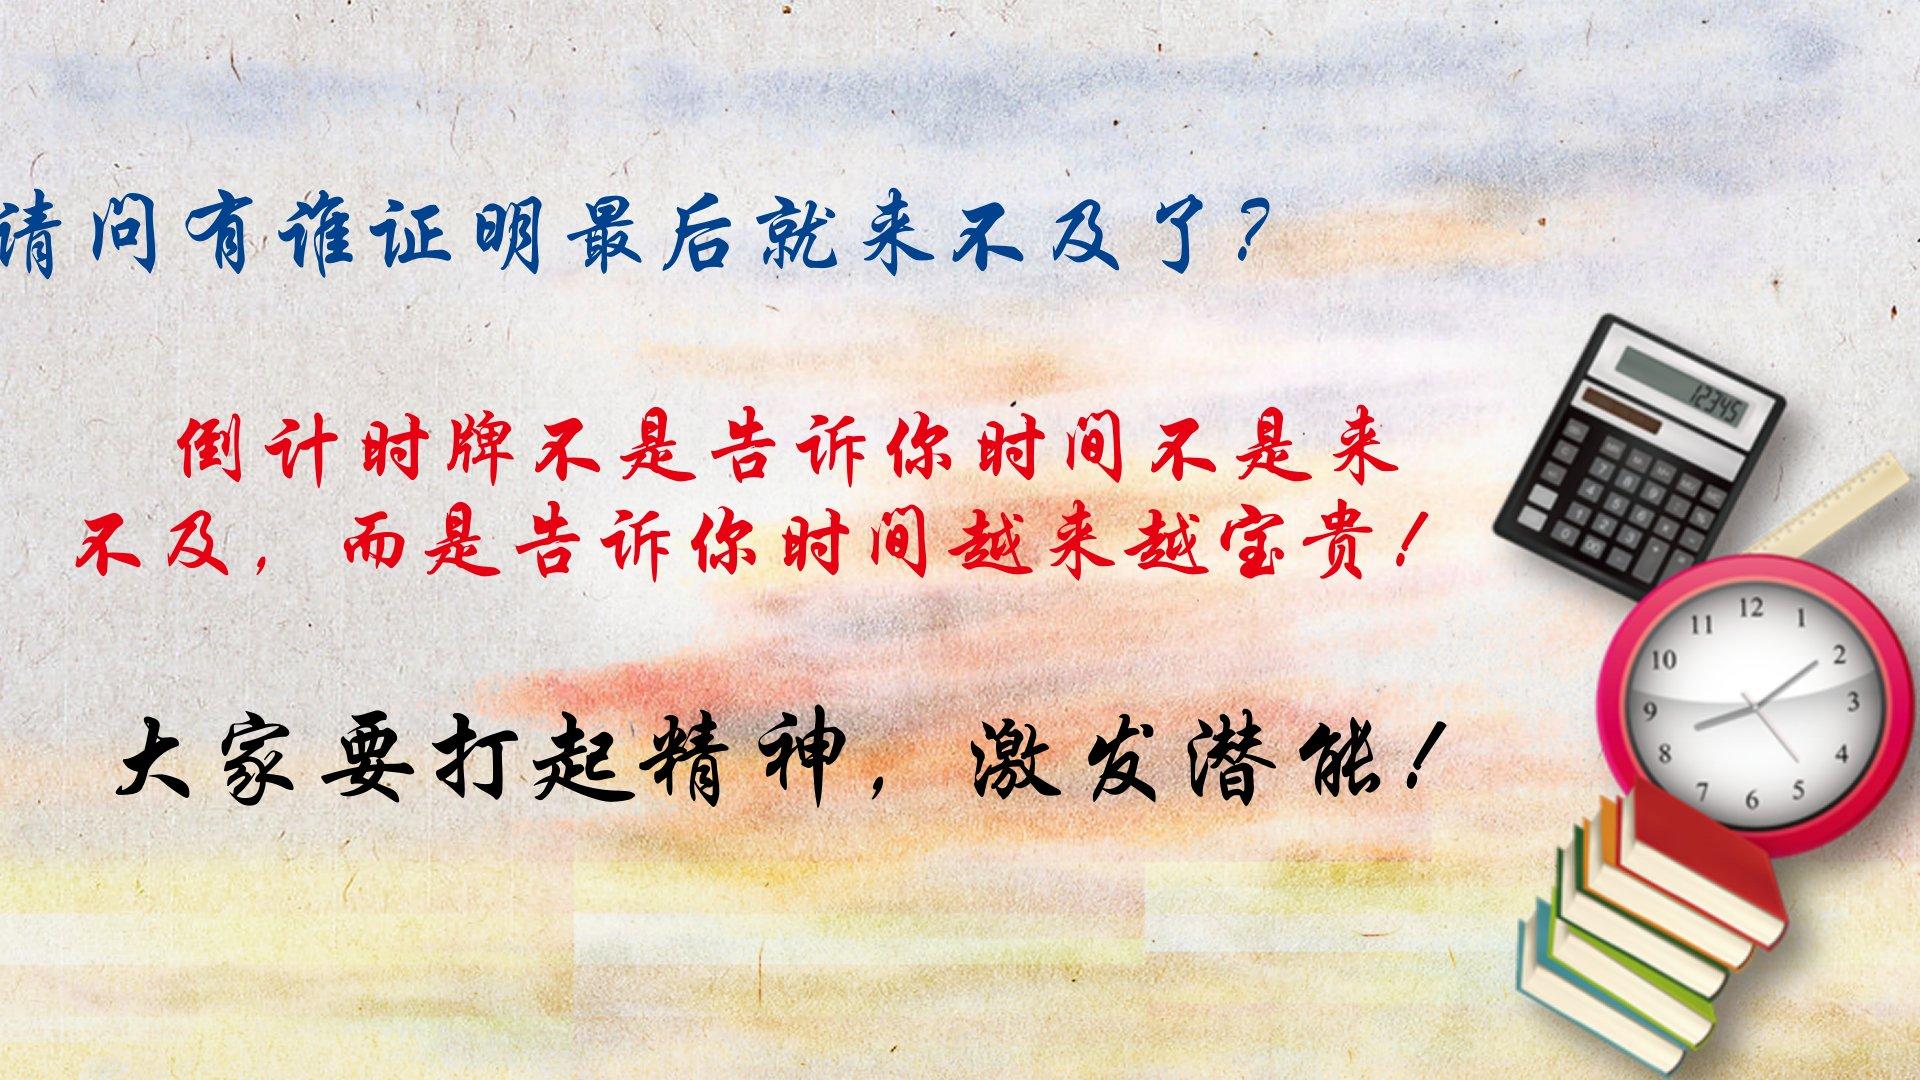 请问有谁证明最后就来不及了？
倒计时牌不是告诉你时间不是来
不及，而是告诉你时间越来越宝贵！
大家要打起精神，激发潜能！
12345
12
1
2
3
4
5
6
7
8
9
10
11